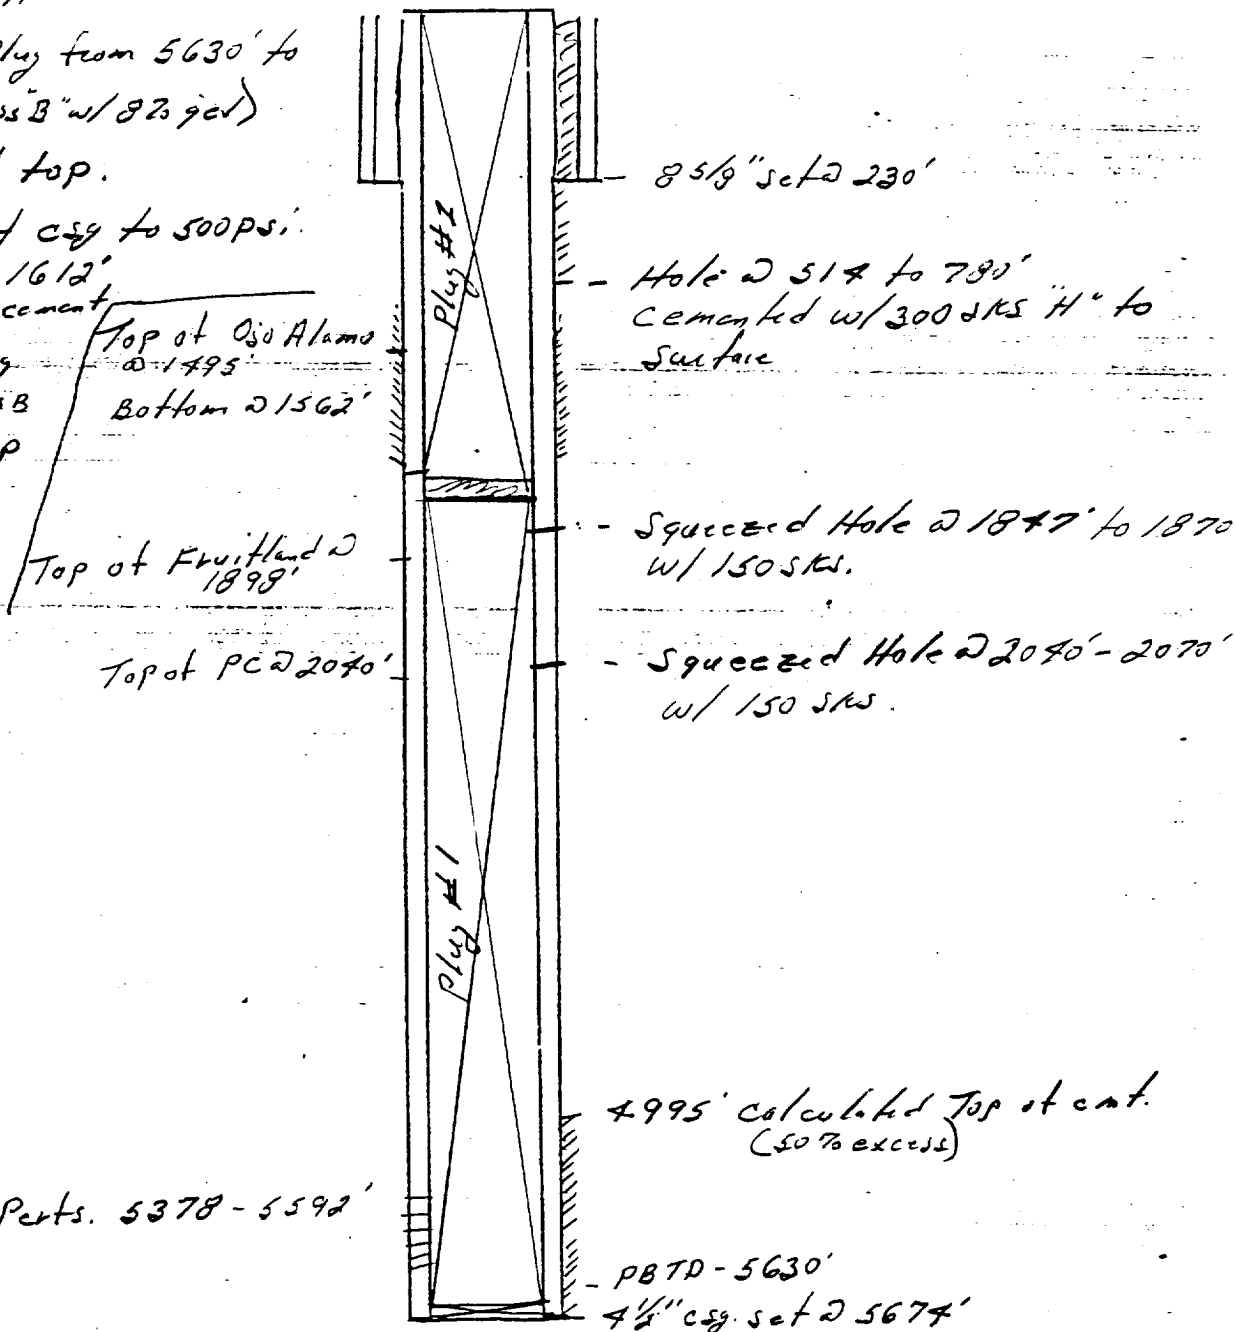 Plug from 5630' to
"B" w/ 8% gel)
top.
csg to 500 psi.
1612'
cement
Top of Ojo Alamo
@ 1495'
B
Bottom @ 1562'
Top of Fruitland @
1898'
Top of PC @ 2040'
Perfs. 5378 - 5592'
Plug #2
Plug #1
8 5/8" set @ 230'
Hole @ 514 to 780'
Cemented w/ 300 sks "H" to
Surface
Squeezed Hole @ 1847' to 1870
w/ 150 sks.
Squeezed Hole @ 2040' - 2070'
w/ 150 sks.
4995' calculated Top of cmt.
(50% excess)
PBTD - 5630'
4 1/2" csg. set @ 5674'